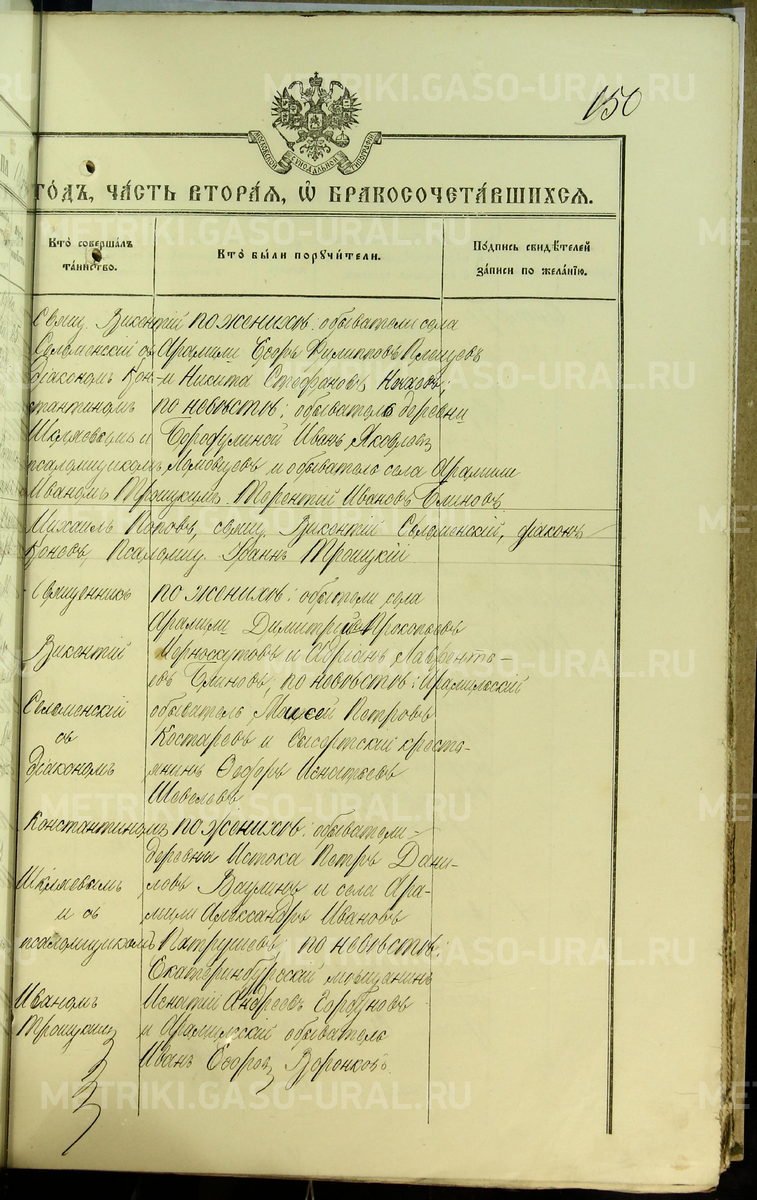 150
МОСКОВСКОЙ СУНОДАЛЬНОЙ ТИПОГРАФІИ
ГО́ДЪ, ЧА́СТЬ ВТОРА́Я, Ѡ БРАКОСОЧЕТА́ВШИХСѦ.
Кто̀ соверша́лъ та́инство.
Кто̀ бы́ли порꙋчи́тели.
По́дпись свидѣ́телей за́писи по жела́нїю.
Свящ. Викентій
Селеменскій съ
діакономъ Кон-
стантиномъ
и
псаломщикомъ
Иваномъ Троицкимъ.
по женихѣ: обыватели села
Арамили Егоръ Филипповъ
и Никита Стефановъ
по невѣстѣ: обыватель деревни
Бородулиной Иванъ Яковлевъ
и обыватель села Арамили
Терентій Ивановъ Блиновъ
Михаилъ Поповъ, свящ. Викентій Селеменскій, діаконъ
Псаломщ. Іоаннъ Троицкій
Священникъ
Викентій
Селеменскій
съ
діакономъ
Константиномъ
и съ
псаломщикомъ
Иваномъ
Троицкимъ
по женихѣ: обыватели села
Арамили Димитрій Прокопьевъ
Черноскутовъ и Адріанъ Лавренть-
евъ Блиновъ, по невѣстѣ: Арамильскій
обыватель Моисей Петровъ
Костаревъ и Сысертский кресть-
янинъ Ѳедоръ Игнатьевъ
Шевелевъ
по женихѣ: обыватели
деревни Истока Петръ Дани-
ловъ Ваулинъ и села Ара-
мили Александръ Ивановъ
Патрушевъ; по невѣстѣ:
Екатеринбургскій мѣщанинъ
Игнатій Андреевъ Горбуновъ
и Арамильскій обыватель
Иванъ Егоровъ Воронковъ.
METRIKI.GASO-URAL.RU